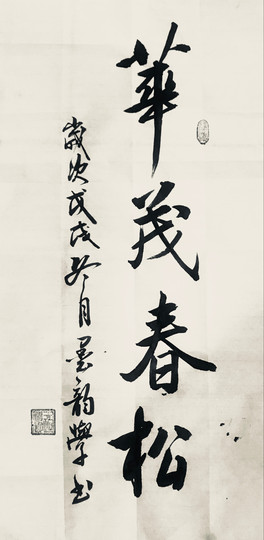 華茂春松
歲次戊戌冬月墨韵學书